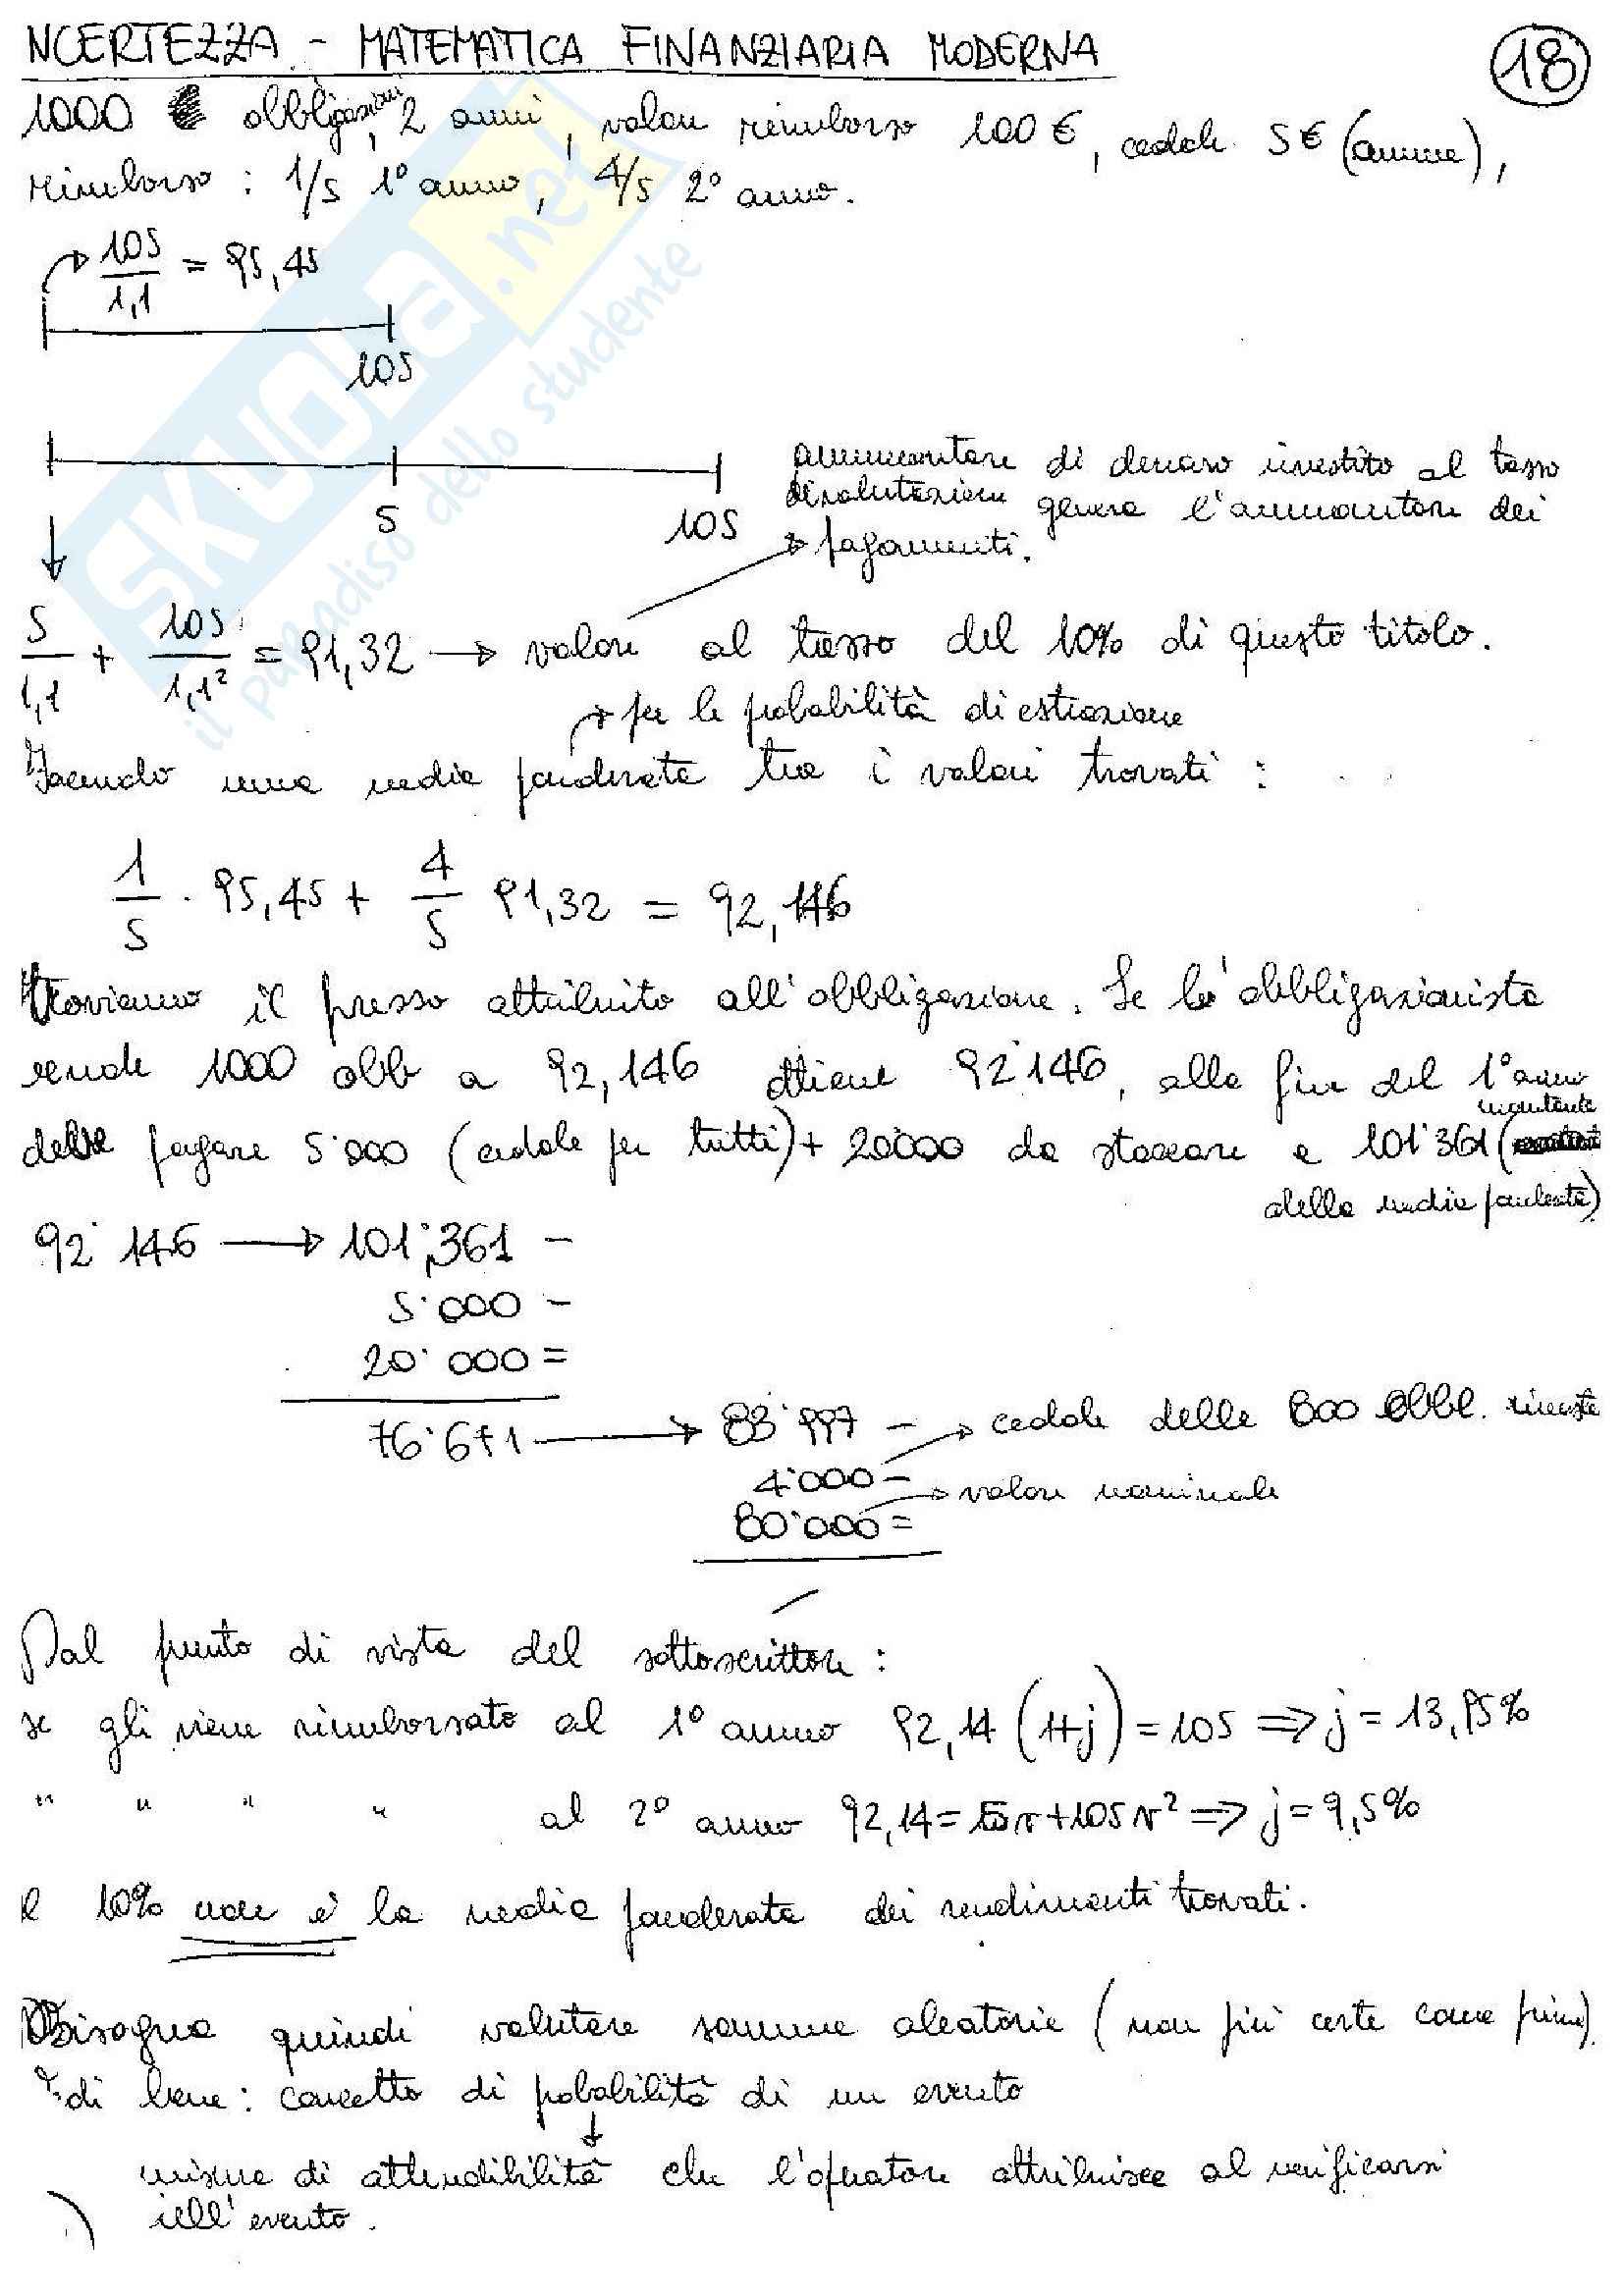 NCERTEZZA - MATEMATICA FINANZIARIA MODERNA
18
1000 obbligazioni, 2 anni, valore rimborso 100 €, cedole 5 € (annue),
rimborso: 1/5 1° anno, 4/5 2° anno.
105/1,1 = 95,45
105
5 105
ammontare di denaro investito al tasso
di valutazione genera l'ammontare dei
pagamenti.
5/1,1 + 105/1,1² = 91,32 → valore al tasso del 10% di questo titolo.
→ per le probabilità di estrazione
Facendo una media ponderata tra i valori trovati:
1/5 · 95,45 + 4/5 91,32 = 92,146
troviamo il prezzo attribuito all'obbligazione. Se l'obbligazionista
vende 1000 obb a 92,146 ottiene 92'146, alla fine del 1° anno
deve pagare 5'000 (cedole per tutti) + 20'000 da staccare a 101'361 (montante
della media ponderata)
92'146 → 101'361 -
5'000 -
20'000 =
→ 83'997 - → cedole delle 800 obbl. rimaste
4'000 -
→ valore nominale
80'000 =
Dal punto di vista del sottoscrittore:
se gli viene rimborsato al 1° anno 92,14 (1+j) = 105 ⇒ j = 13,95%
" " " " al 2° anno 92,14 = 5v + 105v² ⇒ j = 9,5%
l 10% non è la media ponderata dei rendimenti trovati.
Bisogna quindi valutare somme aleatorie (non più certe come prima).
di bene: concetto di pobabilità di un evento
misura di attendibilità che l'operatore attribuisce al verificarsi
dell'evento.
SKUOLA.net
il paradiso dello studente